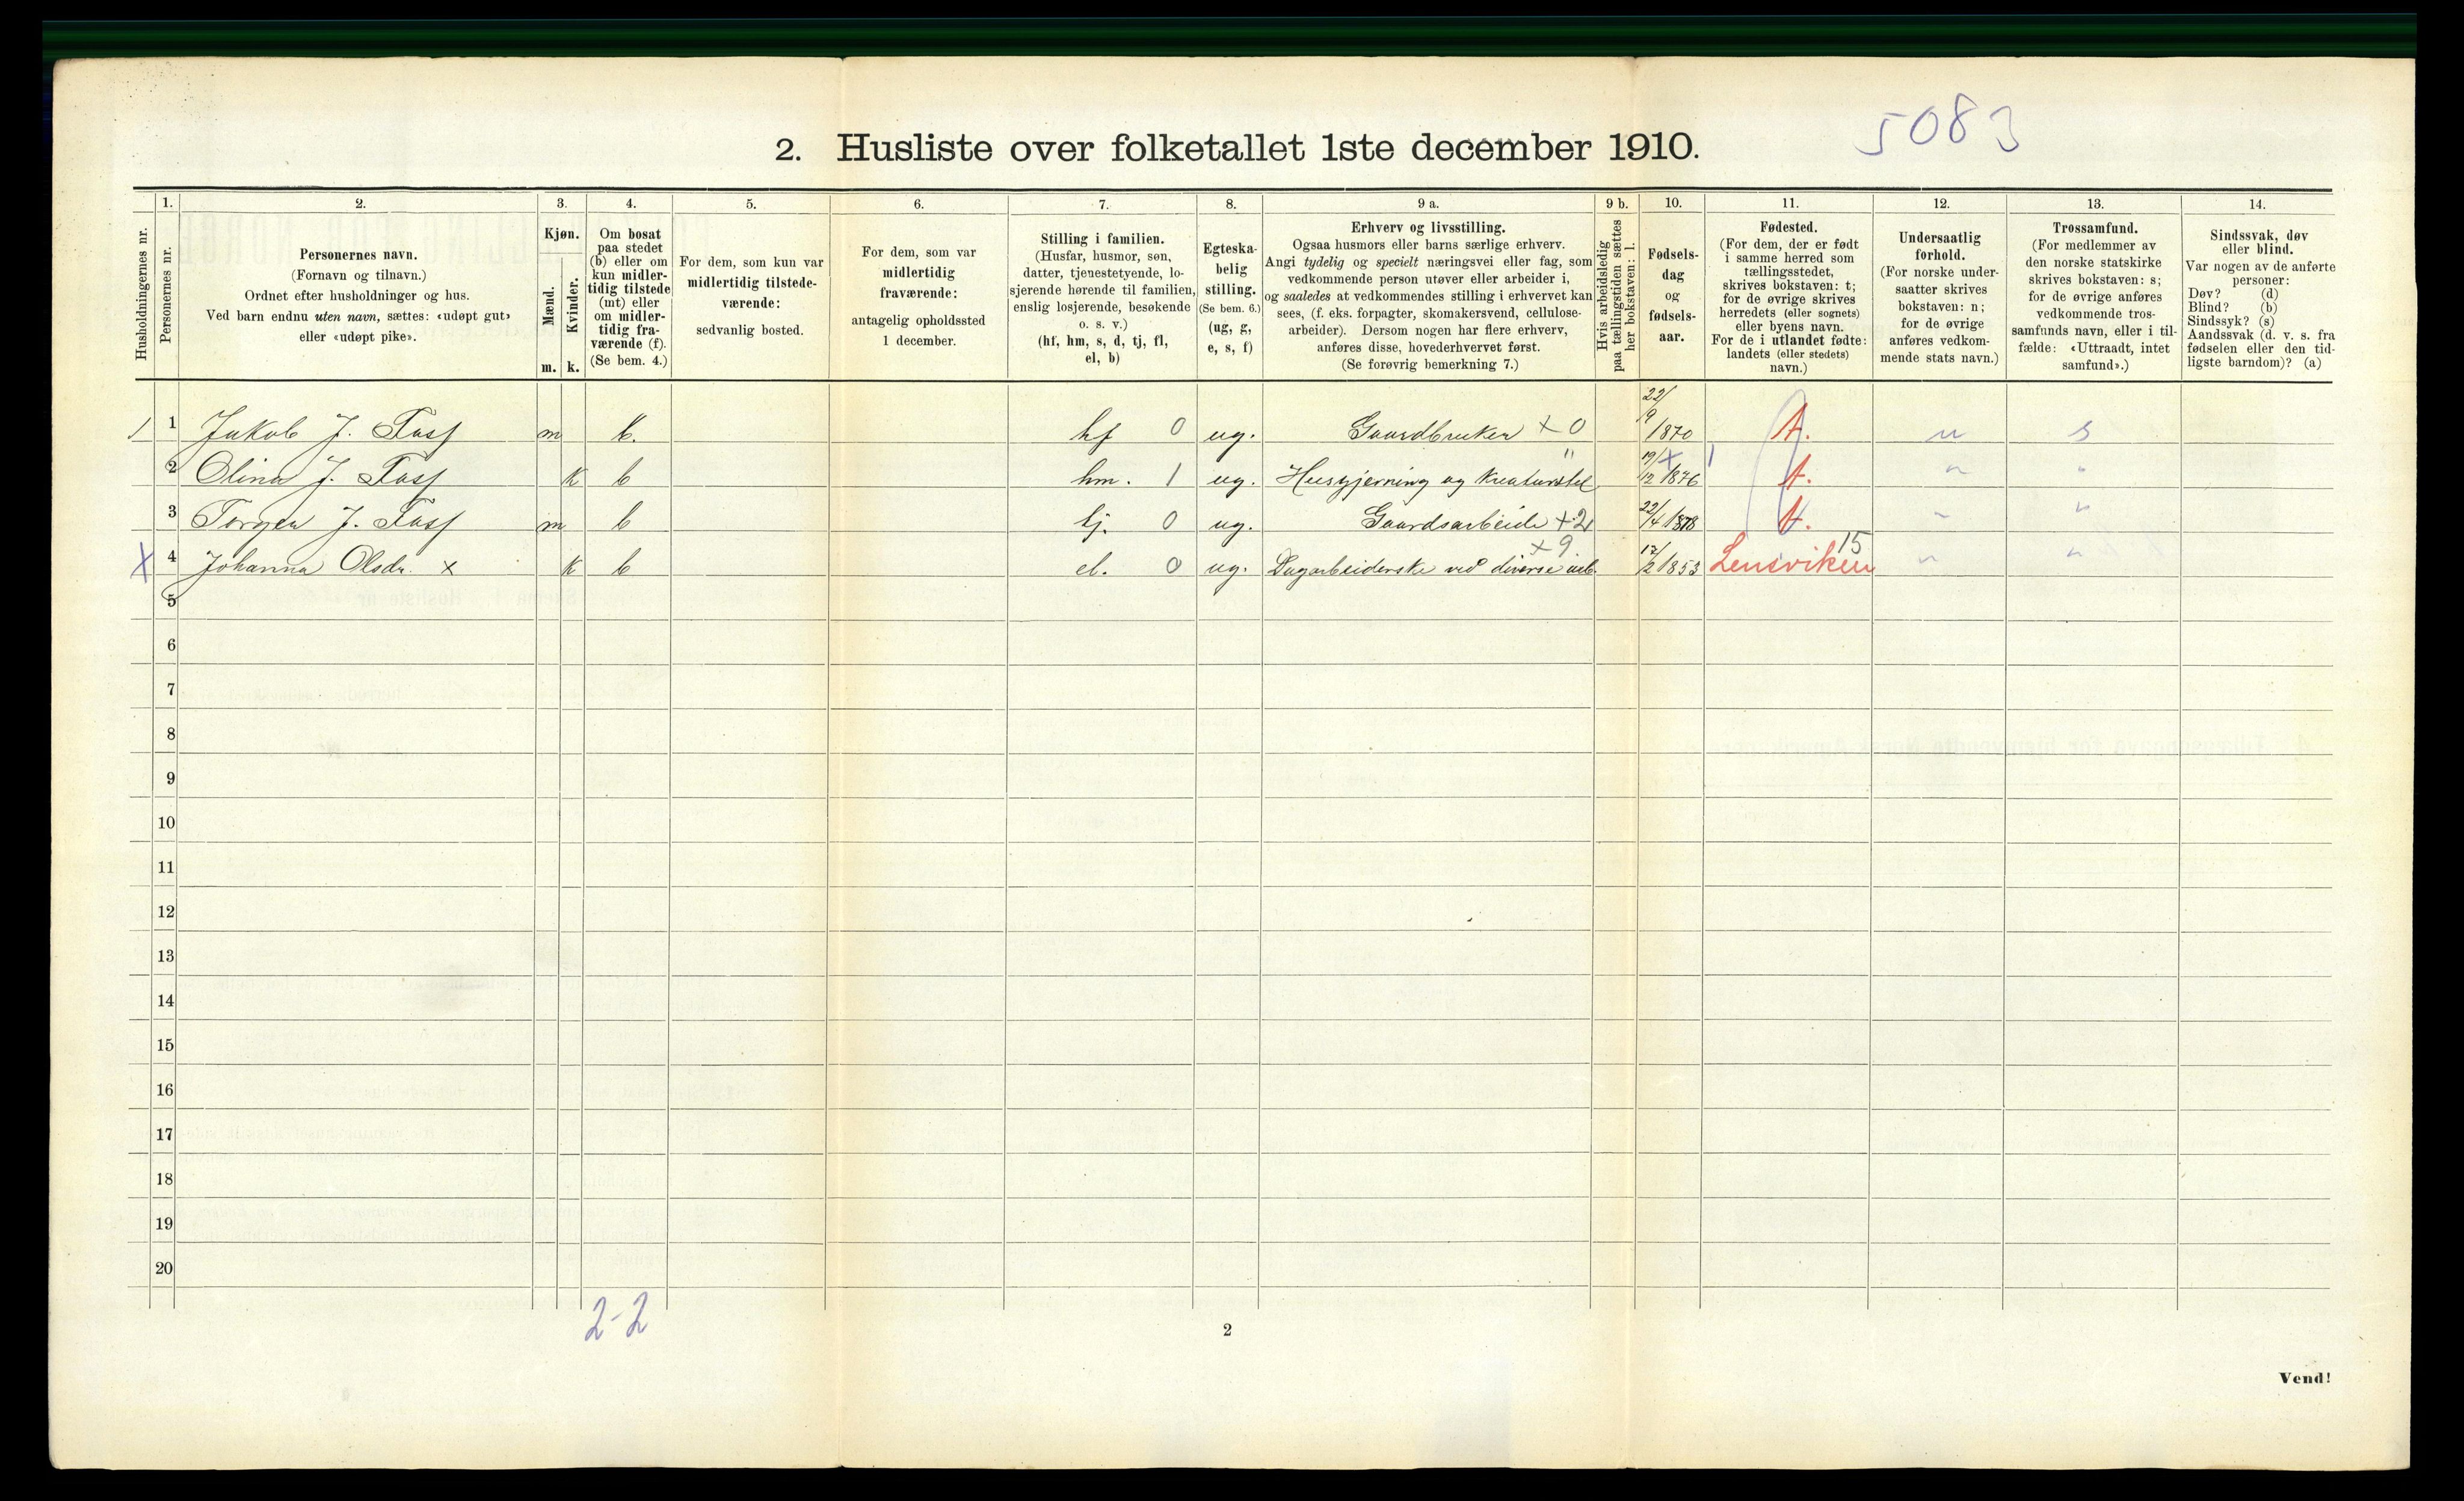 5083
2. Husliste over folketallet 1ste december 1910.
Husholdningernes nr.
1.
Personernes nr.
2.
Personernes navn.
(Fornavn og tilnavn.)
Ordnet efter husholdninger og hus.
Ved barn endnu uten navn, sættes: «udøpt gut»
eller «udøpt pike».
3.
Kjøn.
Mænd.
Kvinder.
m. k.
4.
Om bosat
paa stedet
(b) eller om
kun midler-
tidig tilstede
(mt) eller
om midler-
tidig fra-
værende (f).
(Se bem. 4.)
5.
For dem, som kun var
midlertidig tilstede-
værende:
sedvanlig bosted.
6.
For dem, som var
midlertidig
fraværende:
antagelig opholdssted
1 december.
7.
Stilling i familien.
(Husfar, husmor, søn,
datter, tjenestetyende, lo-
sjerende hørende til familien,
enslig losjerende, besøkende
o. s. v.)
(hf, hm, s, d, tj, fl,
el, b)
8.
Egteska-
belig
stilling.
(Se bem. 6.)
(ug, g,
e, s, f)
9 a.
Erhverv og livsstilling.
Ogsaa husmors eller barns særlige erhverv.
Angi tydelig og specielt næringsvei eller fag, som
vedkommende person utøver eller arbeider i,
og saaledes at vedkommendes stilling i erhvervet kan
sees, (f. eks. forpagter, skomakersvend, cellulose-
arbeider). Dersom nogen har flere erhverv,
anføres disse, hovederhvervet først.
(Se forøvrig bemerkning 7.)
9 b.
Hvis arbeidsledig
paa tællingstiden sættes
her bokstaven: l.
10.
Fødsels-
dag
og
fødsels-
aar.
11.
Fødested.
(For dem, der er født
i samme herred som
tællingsstedet,
skrives bokstaven: t;
for de øvrige skrives
herredets (eller sognets)
eller byens navn.
For de i utlandet fødte:
landets (eller stedets)
navn.)
12.
Undersaatlig
forhold.
(For norske under-
saatter skrives
bokstaven: n;
for de øvrige
anføres vedkom-
mende stats navn.)
13.
Trossamfund.
(For medlemmer av
den norske statskirke
skrives bokstaven: s;
for de øvrige anføres
vedkommende tros-
samfunds navn, eller i til-
fælde: «Uttraadt, intet
samfund».)
14.
Sindssvak, døv
eller blind.
Var nogen av de anførte
personer:
Døv? (d)
Blind? (b)
Sindssyk? (s)
Aandssvak (d. v. s. fra
fødselen eller den tid-
ligste barndom)? (a)
1 1 Jakob J. m b. hf 0 ug. Gaardbruker × 0 22/9 1870 t. n s
2 Olina J. k b hm. 1 ug. Husgjerning og Kreaturstel " 19/12 1876 t. " "
3 Torger J. m b tj. 0 ug. Gaardsarbeide × 2 22/4 1878 t. " "
× 4 Johanna Olsdr. × k b el. 0 ug. Dagarbeiderske ved diverse arb. × 9. 17/2 1853 Lensviken 15 " "
5
6
7
8
9
10
11
12
13
14
15
16
17
18
19
20
2-2
2
Vend!